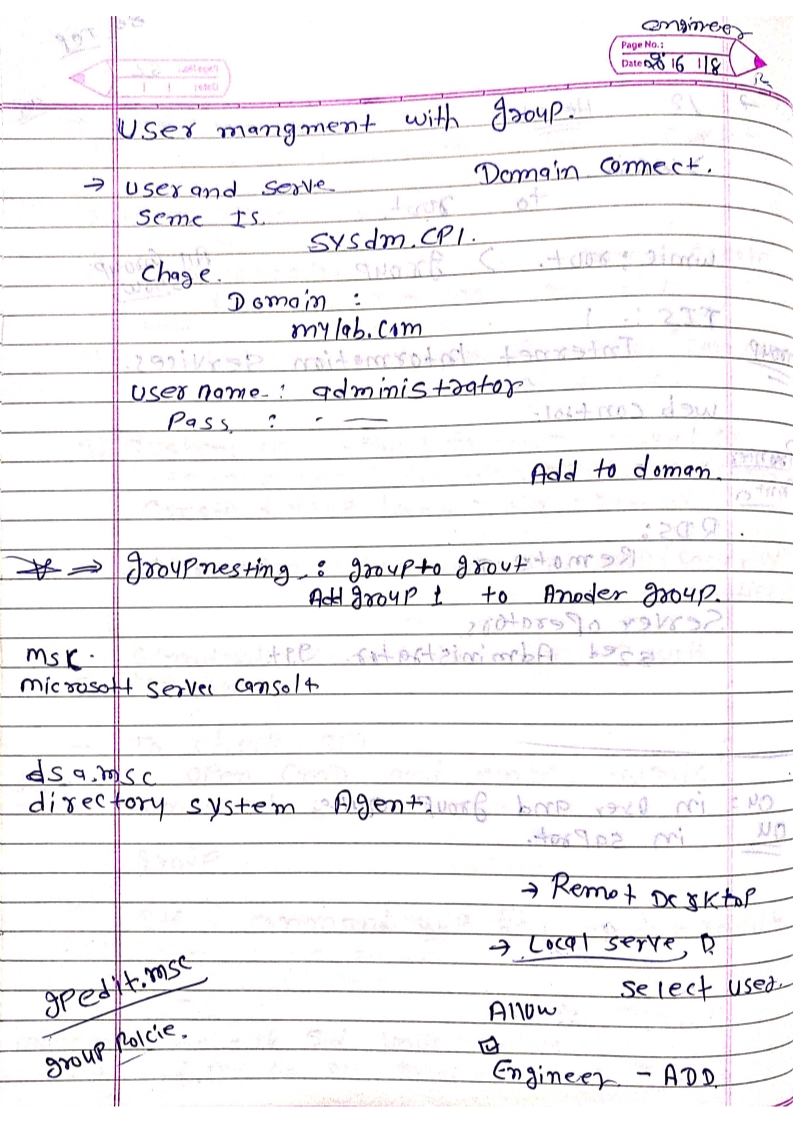 engineer
Page No.:
Date 16 1/8
User mangment with group.
→ user and serve Domain Connect.
Seme Is.
sysdm.CPl.
Chage.
Domain :
mylab.com
user name : administrator
Pass : - —
Add to doman.
⇒ groupnesting : group to grout
Add group 1 to Anoder group.
msc.
microsoft server Cansolt
dsa.msc
directory system Agent.
→ Remot Desktop
→ Local serve,
gpedit.msc
select user.
Allow
group Polcie.
☑
Engineer - ADD